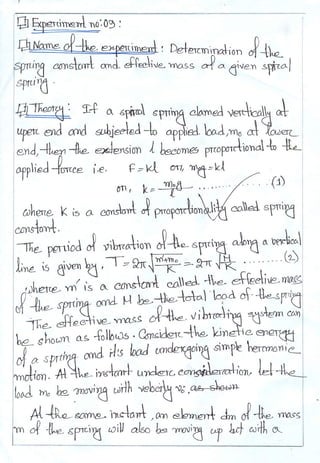 Experiment no:09:
Name of the experiment: Determination of the
spring constant and effective mass of a given spiral
spring.
Theory: If a spiral spring clamed vertically at
uper end and subjected to applied load, m₀ at lower
end, then the extension l becomes propotional to the
applied force i.e. F=kl or, m₀g=kl
or, k= m₀g/l ......... (1)
where K is a constant of proportionality called spring
constant.
The period of vibration of the spring along a vertical
line is given by, T=2π√(m'+m₀/K) = 2π√(M/K) ........(2)
where m' is a constant called the effective mass
of the spring and M be the total load of the spring
The effective mass of the vibrating system can
be shown as follows. Consider the kinetic energy
of a spring and it's load undergoing simple hermonic
motion. At the instant under consideration let the
load m₀ be moving with velocity v₀, as shown
At the same instant, an element dm of the mass
m of the spring will also be moving up but with a